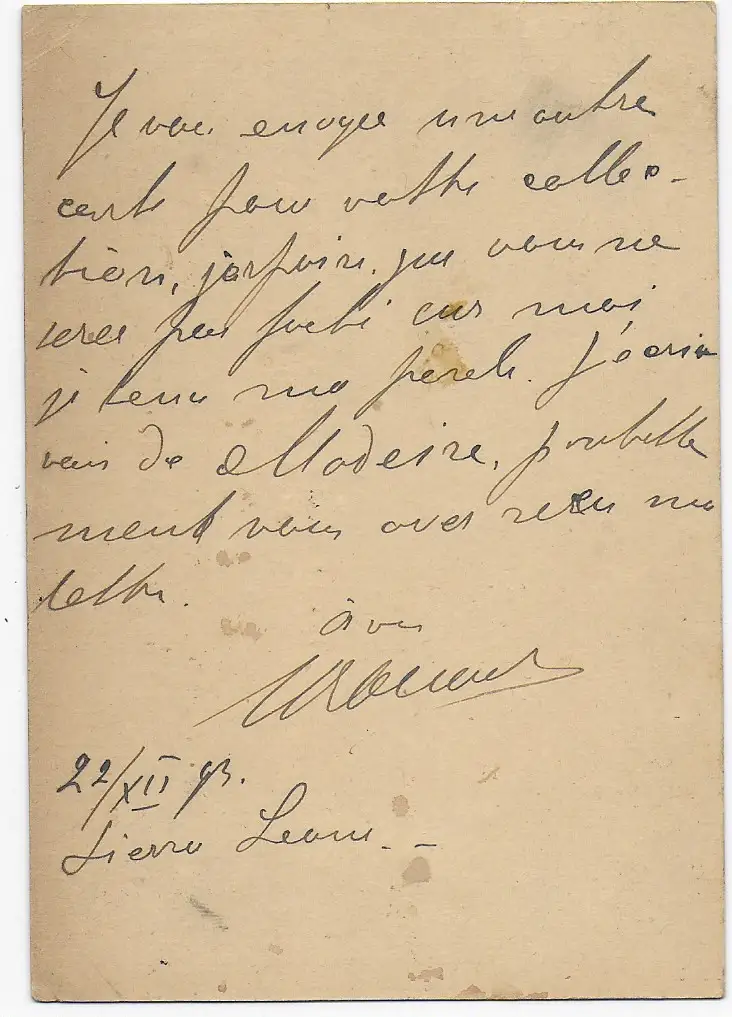 Je vous envoyee une autre
carte pour vottre collec-
tion, j'espoire, que vous ne
serez pas fache sur moi
je tenu ma parole. J'ecri
vais de Madeire, probable
ment vous avez recu ma
lettre.
à vous
22/XII 93.
Sierra Leone. -